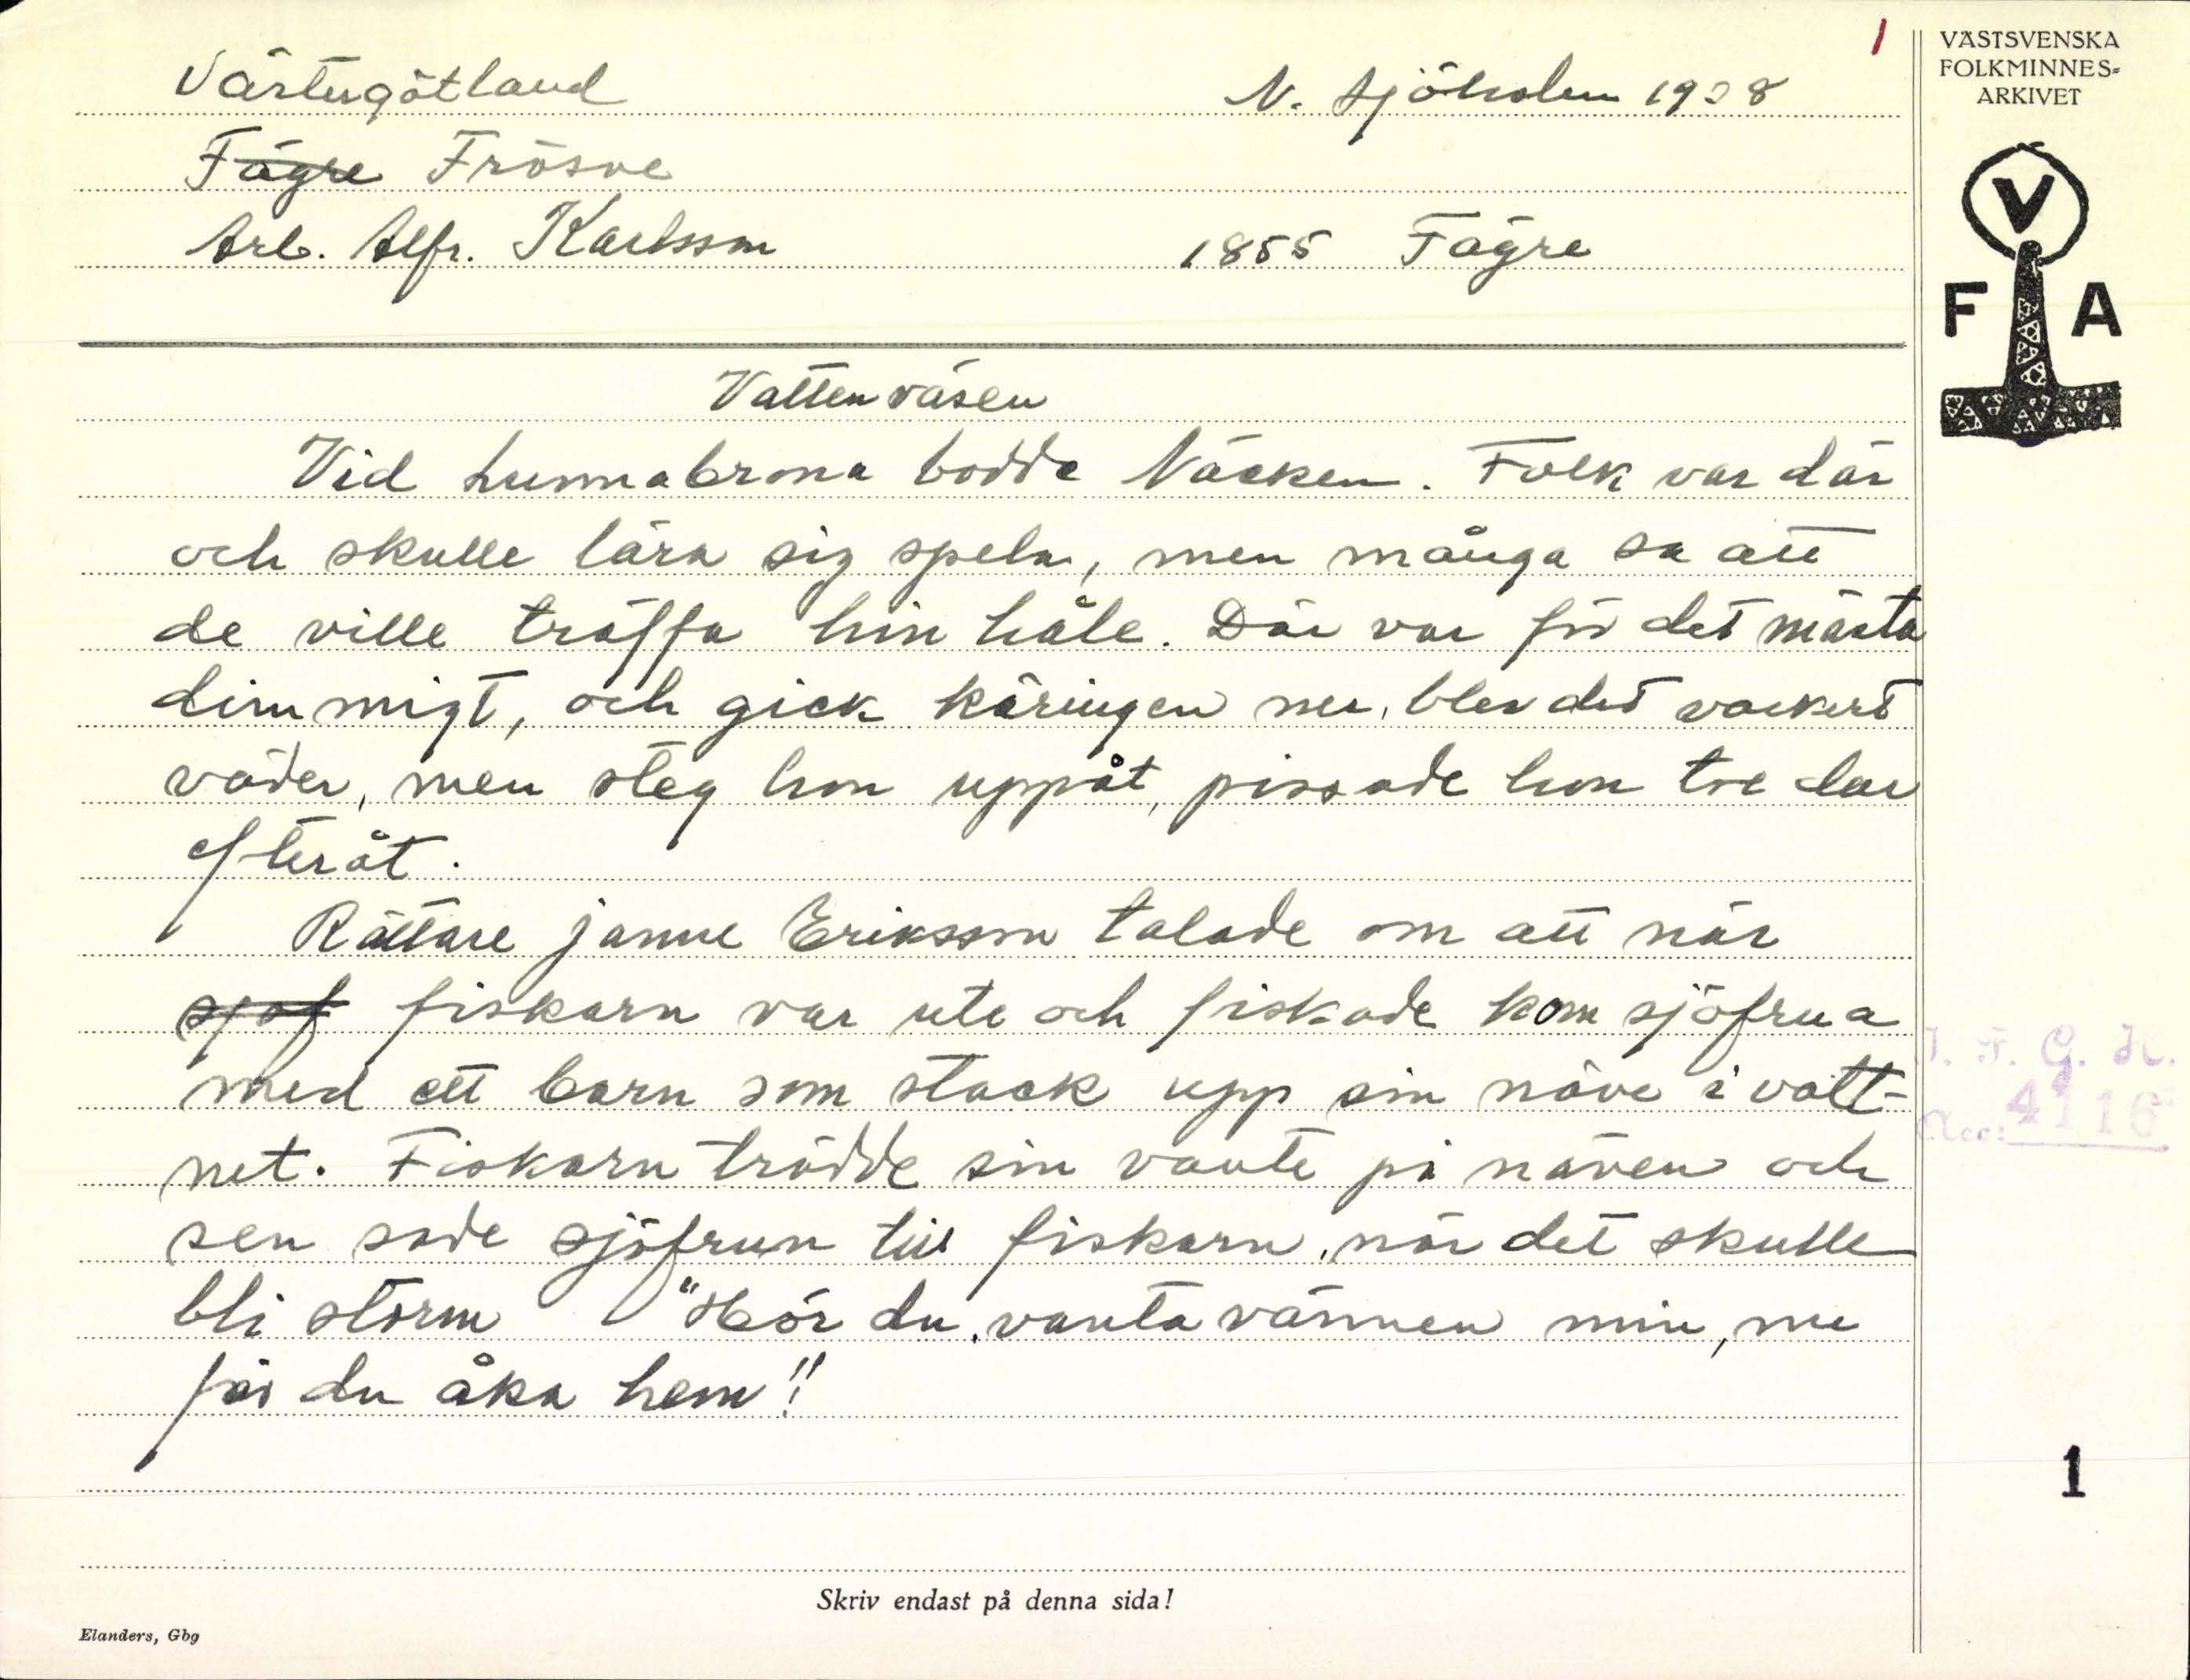 1
VÄSTSVENSKA
FOLKMINNES=
ARKIVET
V
F A
Västergötland N. Sjöholm 1928
Fägre Frösve
Arb. Alfr. Karlsson 1855 Fägre
Vattenväsen
Vid Lunnabrona bodde Näcken. Folk var där
och skulle lära sig spela, men många sa att
de ville träffa hin håle. Där var för det mästa
dimmigt, och gick käringen ner, blev det vackert
väder, men steg hon uppåt, pissade hon tre dar
efteråt.
Rättare Janne Eriksson talade om att när
sjöf fiskarn var ute och fiskade kom sjöfrua
med ett barn som stack upp sin näve i vatt-
net. Fiskarn trädde sin vante på näven och
sen sade sjöfrun till fiskarn, när det skulle
bli storm "Hör du, vantavännen min, nu
får du åka hem!"
I. F. G. H.
Acc: 4116
1
Skriv endast på denna sida!
Elanders, Gbg